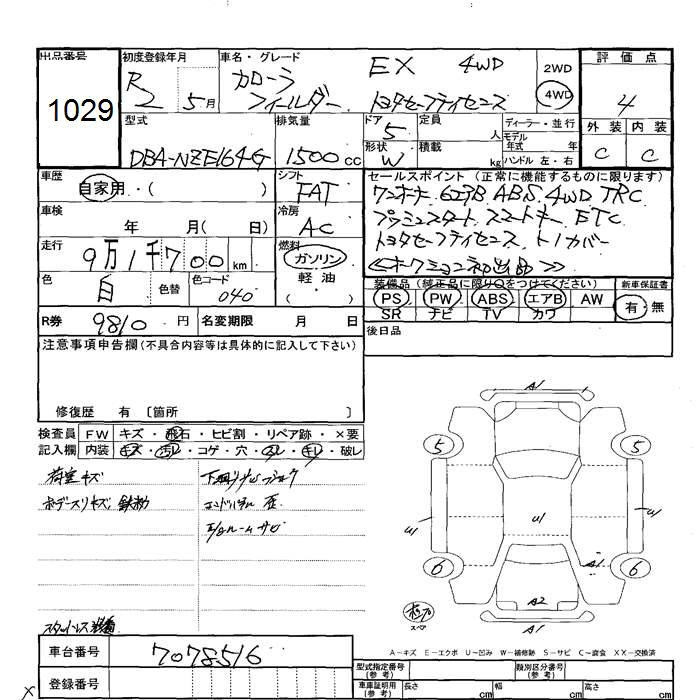 出品番号 1029
初度登録年月 R2 5月
車名・グレード カローラフィールダー EX 4WD トヨタセーフティセンス
2WD 4WD
評価点 4
外装 内装
C C
型式 DBA-NZE164G
排気量 1500cc
ドア 5 形状 W
定員 人
積載 kg
ディーラー・並行
モデル年式 年
ハンドル 左・右
車歴 自家用・( )
シフト FAT
車検 年 月( 日)
冷房 AC
走行 9万1千700km
燃料 ガソリン 軽油 ( )
色 白 色替 色コード 040
R券 9810円 名変期限 月 日
セールスポイント(正常に機能するものに限ります)
ワンオーナー 6エアB ABS 4WD TRC
プッシュスタート スマートキー ETC
トヨタセーフティセンス トノカバー
<<オークション初出品>>
装備品(純正品に限り○をつけてください)
PS PW ABS エアB AW
SR ナビ TV カワ
新車保証書
有・無
後日品
注意事項申告欄(不具合内容等は具体的に記入して下さい)
修復歴 有〔箇所 〕
検査員記入欄
FW キズ・飛石・ヒビ割・リペア跡・×要
内装 キズ・汚レ・コゲ・穴・スレ・キレ・破レ
荷室キズ
ボデースリキズ 鉄粉
エンドパネル 歪
E/gルームサビ
スタットレス装着
A1
5 5
U1 U1 U1
A1
6 6
A2
A1
スペア
A-キズ E-エクボ U-凹み W-補修跡 S-サビ C-腐食 XX-交換済
車台番号 7078516
登録番号
型式指定番号(参考)
類別区分番号(参考)
車庫証明用(参考) 長さ cm 幅 cm 高さ cm
X